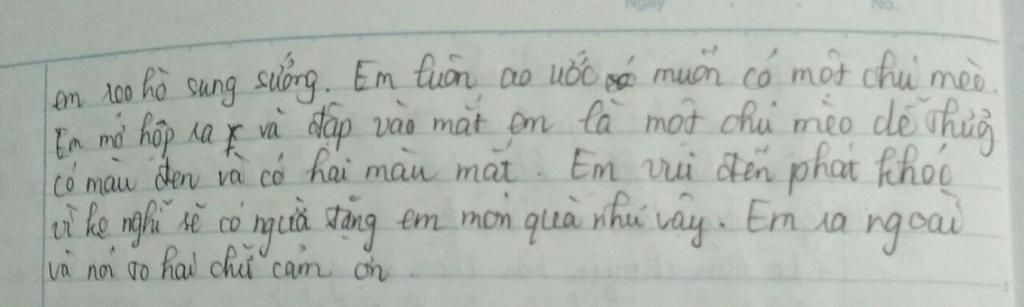 em reo hò sung sướng. Em luôn ao ước muốn có một chú mèo.
Em mở hộp ra và đập vào mắt em là một chú mèo dễ thương
có màu đen và có hai màu mắt. Em vui đến phát khóc
vì ko nghĩ sẽ có người tặng em món quà như vậy. Em ra ngoài
và nói to hai chữ cảm ơn
Ngày
No.